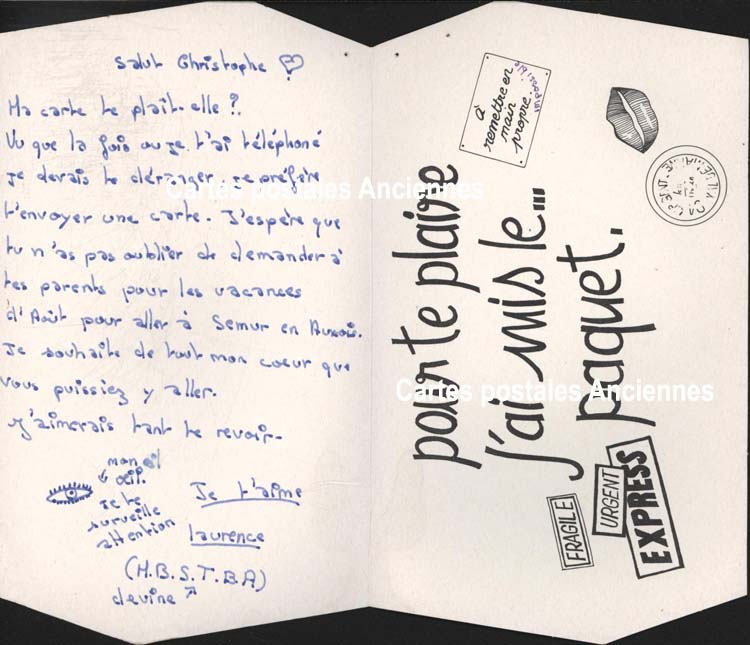 Salut Christophe
Ma carte te plaît-elle ?
Vu que la fois ou je t'ai téléphoné
je devais te déranger. je préfère
t'envoyer une carte. J'espère que
tu n'as pas oublier de demander à
tes parents pour les vacances
d'Août pour aller à Semur en Auxois.
Je souhaite de tout mon coeur que
vous puissiez y aller.
J'aimerais tant te revoir.
mon
oeil.
je te
surveille
attention
Je t'aime
laurence
(H.B.S.T.B.A)
devine
à
remettre en
main
propre.
pour te plaire
j'ai mis le...
paquet.
FRAGILE
URGENT
EXPRESS
Cartes postales Anciennes
Cartes postales Anciennes